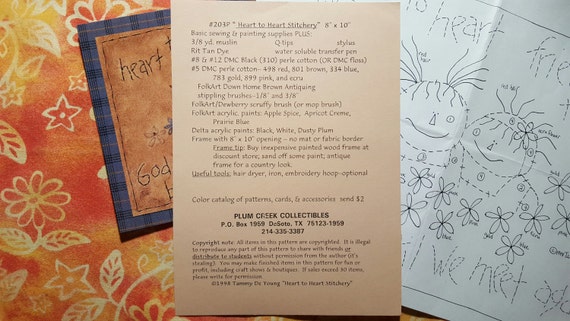 #203P " Heart to Heart Stitchery" 8" x 10"
Basic sewing & painting supplies PLUS:
3/8 yd. muslin Q-tips stylus
Rit Tan Dye water soluble transfer pen
#8 & #12 DMC Black (310) perle cotton (OR DMC floss)
#5 DMC perle cotton-- 498 red, 801 brown, 334 blue,
783 gold, 899 pink, and ecru
FolkArt Down Home Brown Antiquing
stippling brushes--1/8" and 3/8"
FolkArt/Dewberry scruffy brush (or mop brush)
FolkArt acrylic. paints: Apple Spice, Apricot Creme,
Prairie Blue
Delta acrylic paints: Black, White, Dusty Plum
Frame with 8" x 10" opening – no mat or fabric border
Frame tip: Buy inexpensive painted wood frame at
discount store; sand off some paint; antique
frame for a country look.
Useful tools: hair dryer, iron, embroidery hoop-optional
Color catalog of patterns, cards, & accessories send $2
PLUM CREEK COLLECTIBLES
P.O. Box 1959 DeSoto, TX 75123-1959
214-335-3387
Copyright note: All items in this pattern are copyrighted. It is illegal
to reproduce any part of this pattern to share with friends or
distribute to students without permission from the author (it's
stealing). You may make finished items in this pattern for fun or
profit, including craft shows & boutiques. If sales exceed 30 items,
please write for permission.
©1998 Tammy De Young "Heart to Heart Stitchery"
heart t
God
b
red hair
heart
frie
t
we meet